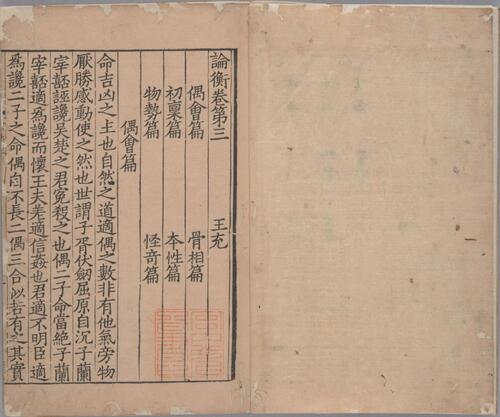 論衡卷第三
王充
偶會篇 骨相篇
初稟篇 本性篇
物勢篇 怪竒篇
偶會篇
命吉凶之主也自然之道適偶之數非有他氣旁物
厭勝感動使之然也世謂子胥伏劒屈原自沉子蘭
宰嚭誣讒吳楚之君冤殺之也偶二子命當絶子蘭
宰嚭適爲讒而懷王夫差適信姦也君適不明臣適
爲讒二子之命偶自不長二偶三合似若有之其實